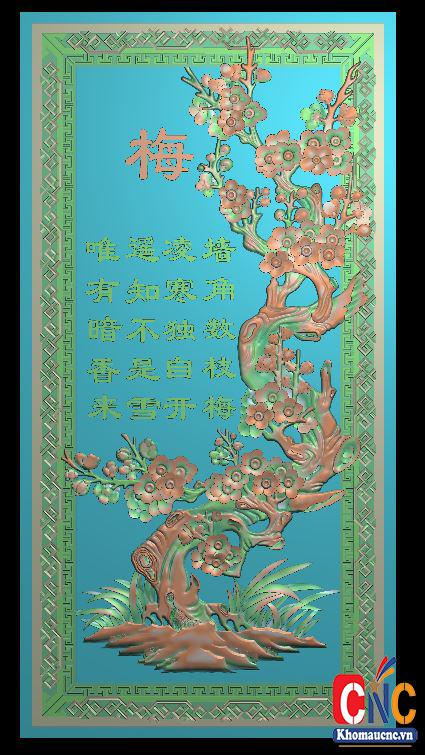 梅
墙角数枝梅
凌寒独自开
遥知不是雪
唯有暗香来
CNC
Khomaucnc.vn